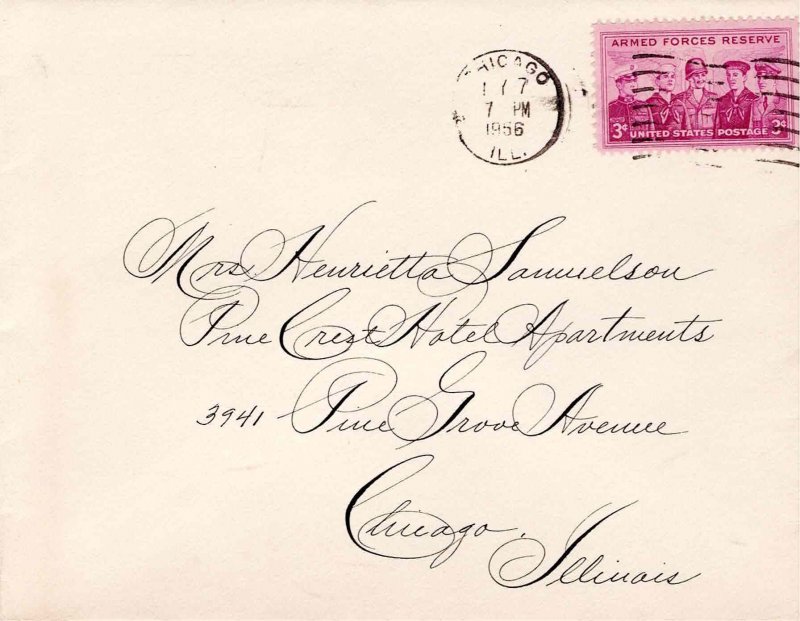 CHICAGO
1 7 7
7 PM
1956
ILL.
ARMED FORCES RESERVE
3¢ UNITED STATES POSTAGE 3¢
Mrs Henrietta Samuelson
Pine Crest Hotel Apartments
3941 Pine Grove Avenue
Chicago,
Illinois